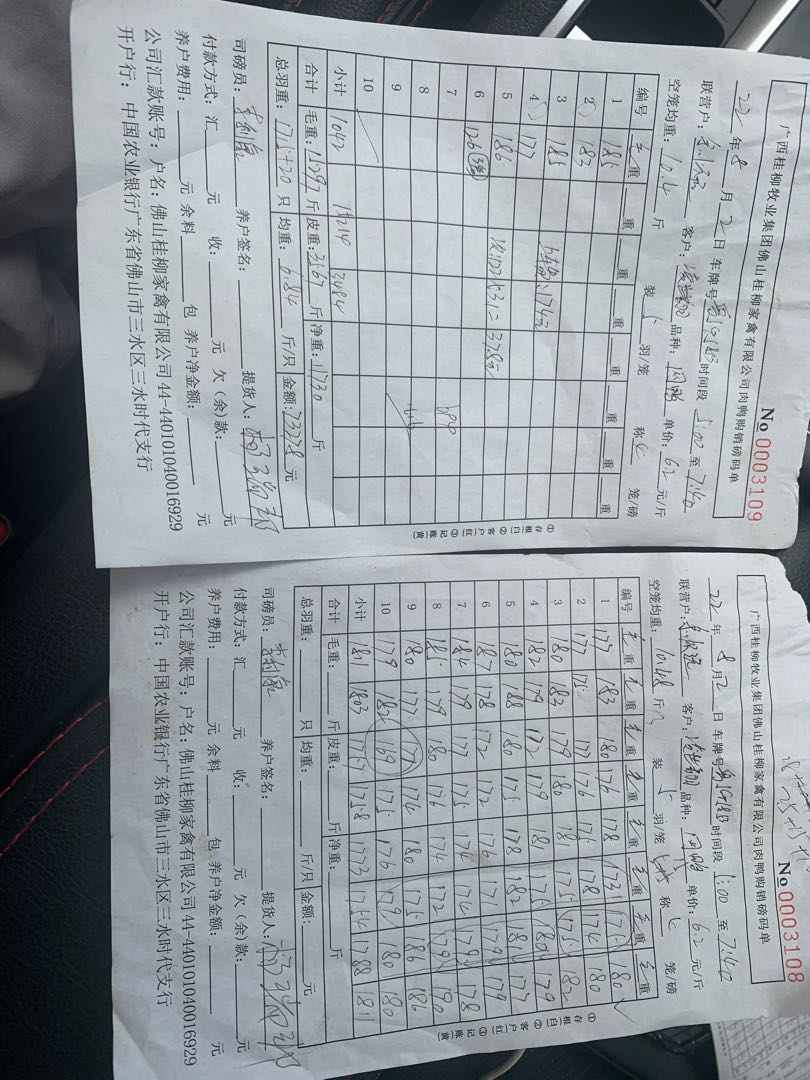 广西桂柳牧业集团佛山桂柳家禽有限公司肉鸭购销磅码单
No 0003109
22 年 8 月 2 日 车牌号 时间段 5:00 至 7:40
联营户: 客户: 品种: 单价: 6.2 元/斤
空笼均重: 10.4 斤 装 5 羽/笼 称 笼/磅
编号 毛重 重 重 重 重 重 重 重
1 185
2 183
3 185
4 177
5 186
6 126
7
8
9
10
小计 1042 14214 3484
合计 毛重: 15297 斤 皮重: 3567 斤 净重: 11730 斤
总羽重: 1715+20 只 均重: 6.84 斤/只 金额: 73378 元
司磅员: 养户签名: 提货人:
付款方式:汇 元 收: 元 欠(余)款: 元
养户费用: 元 余料 包 养户净金额: 元
公司汇款账号:户名:佛山桂柳家禽有限公司 44-440101040016929
开户行:中国农业银行广东省佛山市三水区三水时代支行
①存根(白) ②客户(红) ③记账(黄)
广西桂柳牧业集团佛山桂柳家禽有限公司肉鸭购销磅码单
No 0003108
22 年 8 月 2 日 车牌号 时间段 5:00 至 7:40
联营户: 客户: 品种: 单价: 6.2 元/斤
空笼均重: 10.48 斤 装 5 羽/笼 称 笼/磅
编号 毛重 毛重 毛重 毛重 毛重 毛重 毛重 毛重
1 177 183 180 176 178 173 175 180
2 177 175 177 176 175 178 174 180
3 180 183 179 180 181 175 175 182
4 182 179 172 179 181 175 180 179
5 180 188 180 175 178 182 181 177
6 187 178 172 172 176 171 179 179
7 184 179 177 175 174 174 179 178
8 185 179 180 176 174 172 179 190
9 180 177 171 174 180 175 186 186
10 179 182 169 175 176 179 180 180
小计 1811 1803 1757 1758 1773 1754 1788 1811
合计 毛重: 斤 皮重: 斤 净重: 斤
总羽重: 只 均重: 斤/只 金额: 元
司磅员: 养户签名: 提货人:
付款方式:汇 元 收: 元 欠(余)款: 元
养户费用: 元 余料 包 养户净金额: 元
公司汇款账号:户名:佛山桂柳家禽有限公司 44-440101040016929
开户行:中国农业银行广东省佛山市三水区三水时代支行
①存根(白) ②客户(红) ③记账(黄)